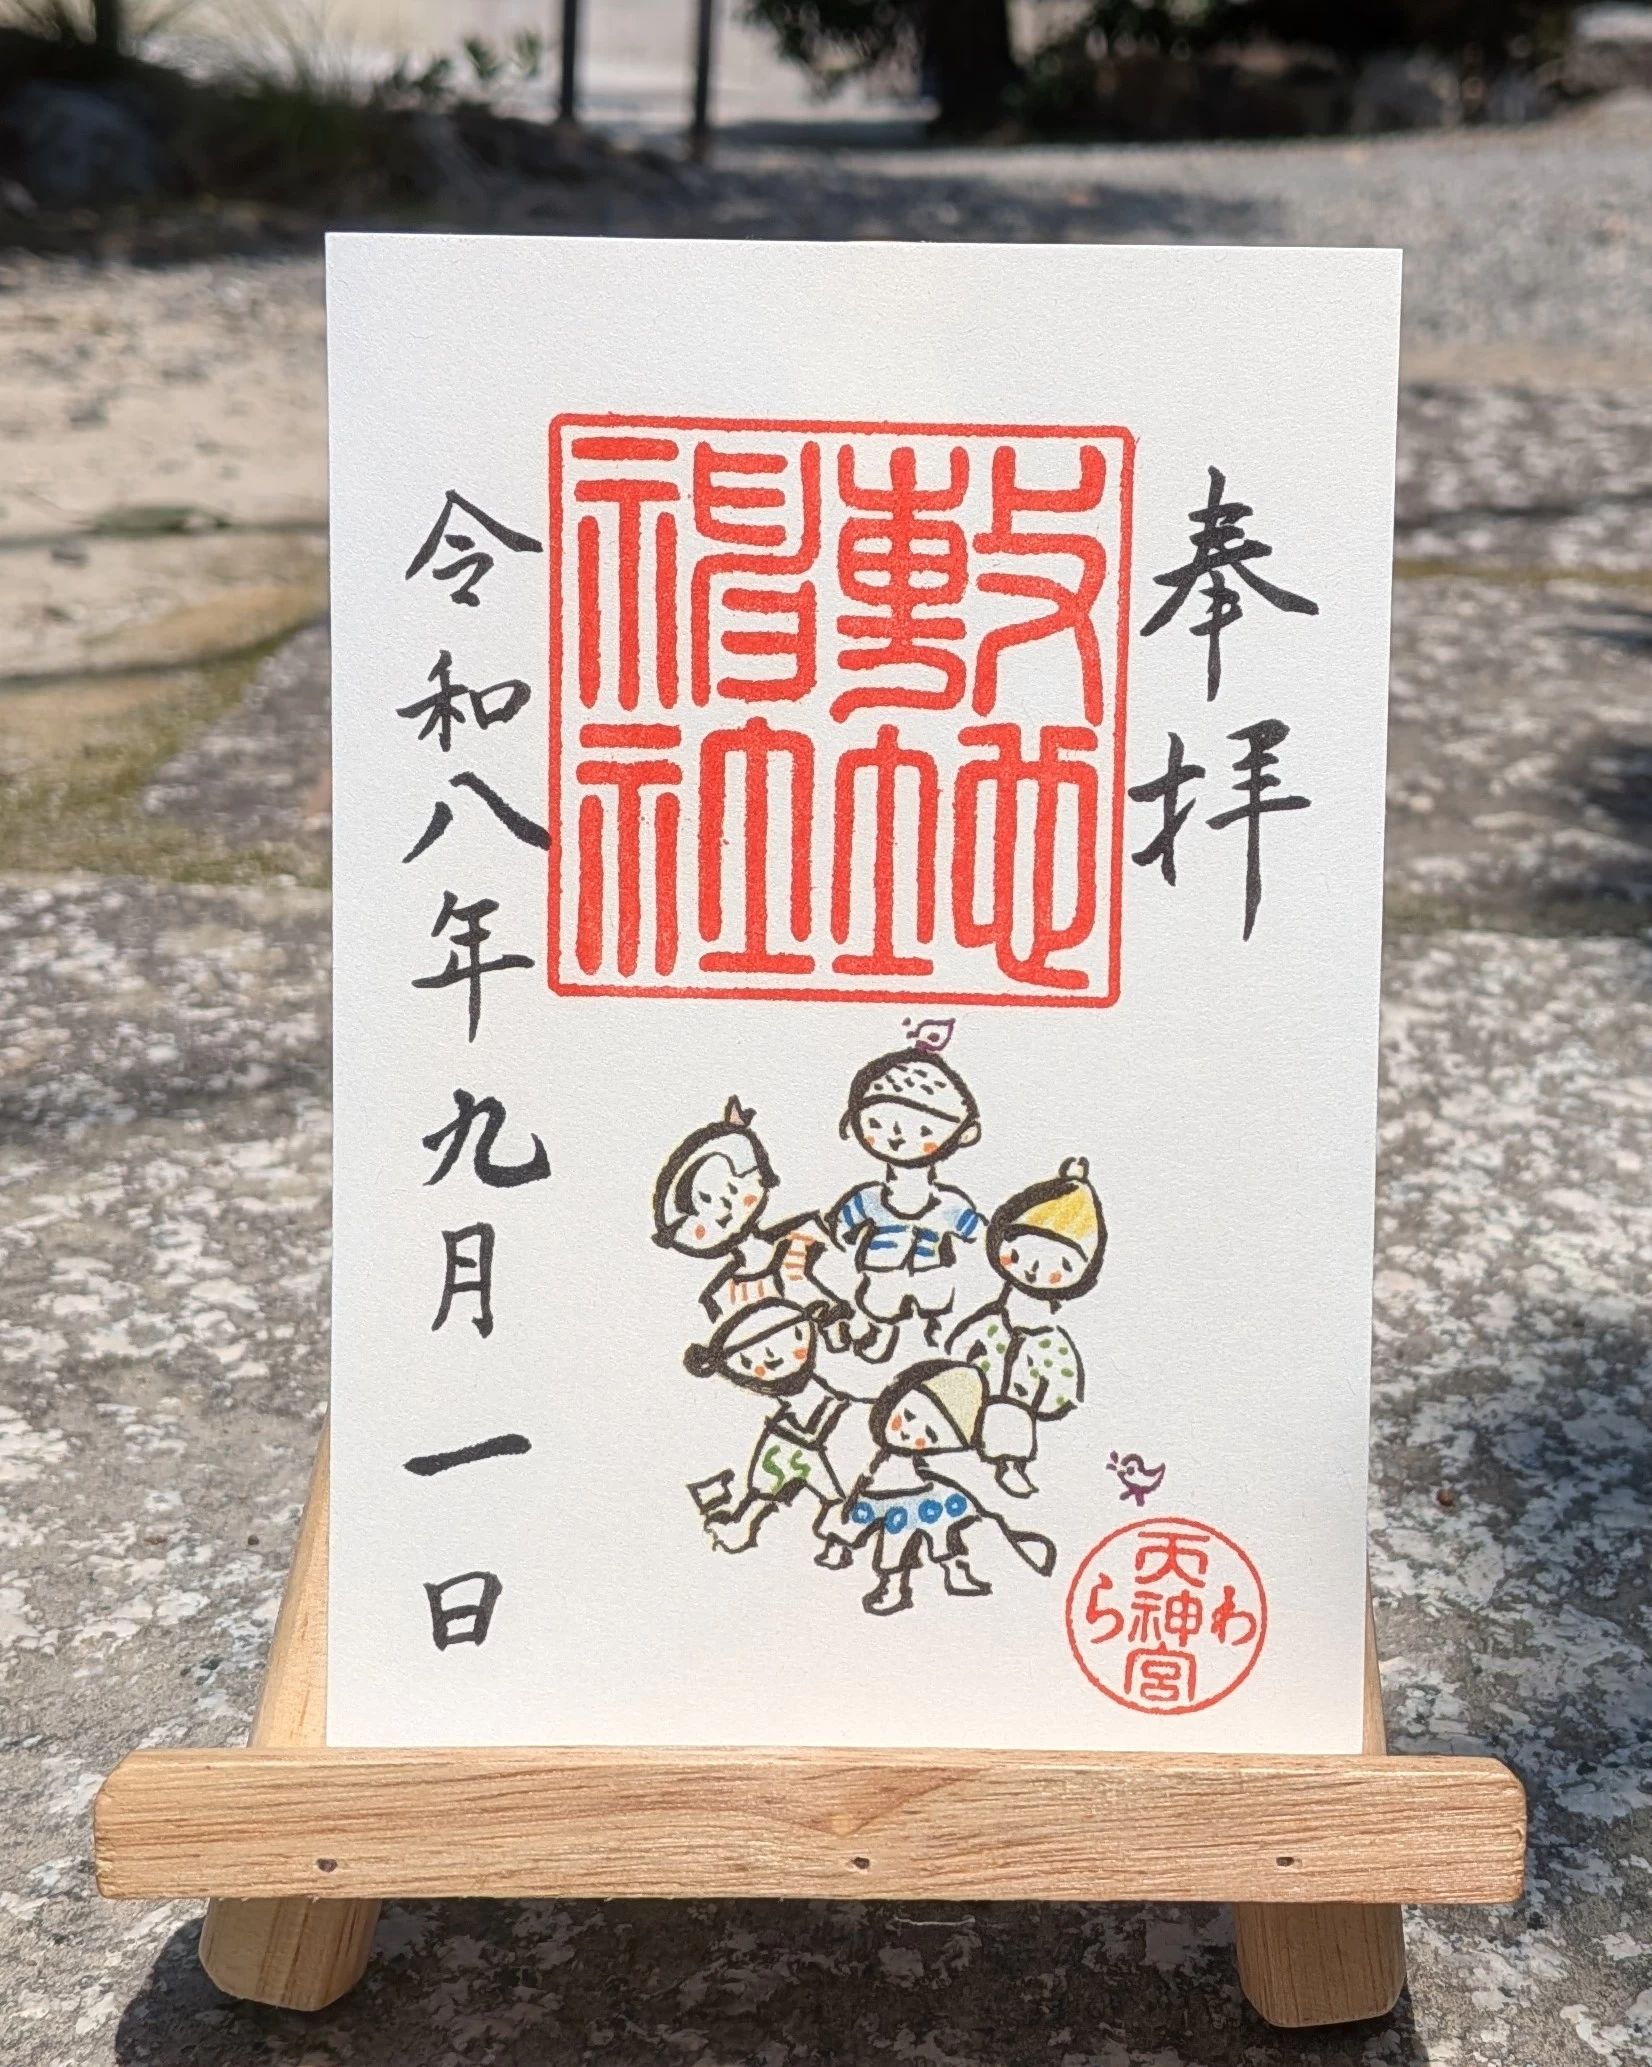 奉拝
敷地
神社
令和八年九月一日
わら
天神宮